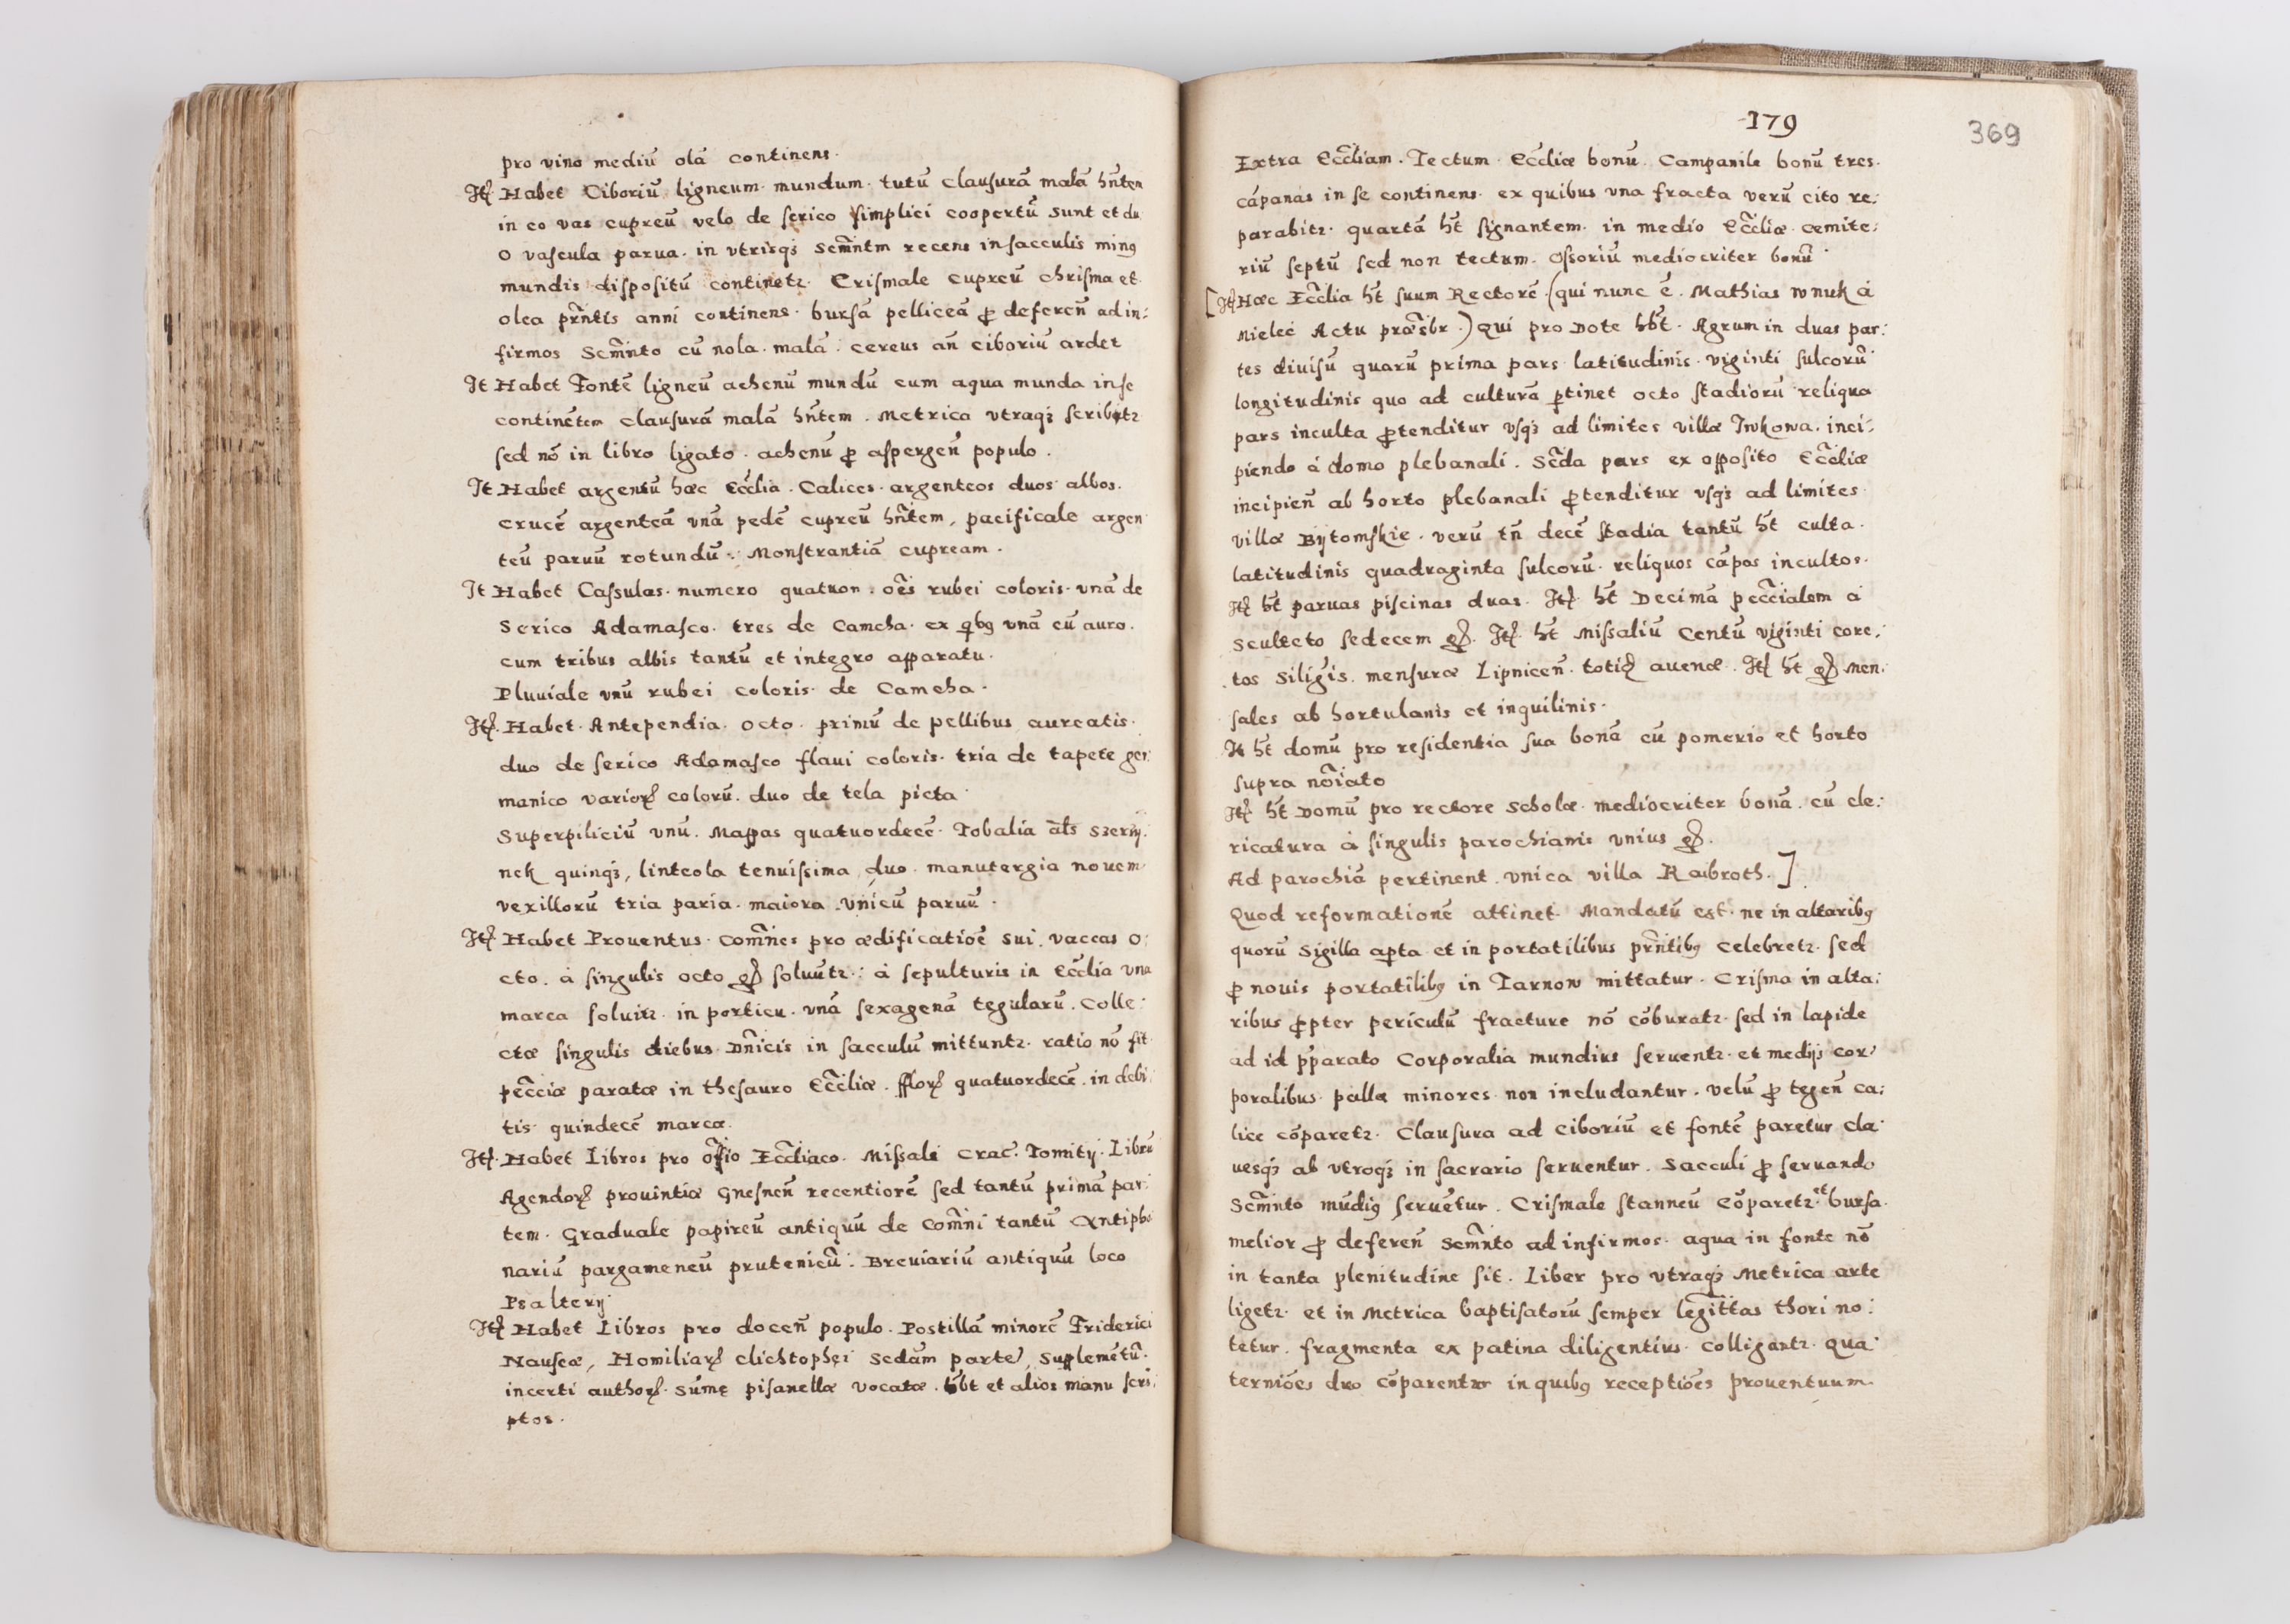 pro vino mediũ olã continens.
Itꝭ Habet Ciboriũ ligneum mundum tutũ clausurã malã hñtem
in eo vas cupreũ velo de serico simplici coopertũ sunt et du
o vascula parua. in vtrisqꝫ Scm̃ntm recens in sacculis minꝯ
mundis dispositũ continetꝛ. Crismale cupreũ chrisma et
olea prñtis anni continens. bursã pelliceã ꝓ defereñ ad in:
firmos Scm̃nto cũ nola malã: cereus añ ciboriũ ardet
It Habet Fontẽ ligneũ ahenũ mundũ cum aqua munda in se
continẽtem clausurã malã hñtem. Metrica vtraqꝫ scribitꝛ
sed nõ in libro ligato. achenũ ꝓ aspergeñ populo.
It Habet argentũ hæc Eccľia. Calices argenteos duos albos.
crucẽ argenteã vnã pedẽ cupreũ hñtem, pacificale argen
teũ paruũ rotundũ. Monstrantiã cupream.
It Habet Cassulas numero quatuor. oẽs rubei coloris. vnã de
Serico Adamasco. tres de Camcha. ex qbꝯ vnã cũ auro.
cum tribus albis tantũ et integro apparatu.
Pluuiale vnũ rubei coloris de Camcha.
Itꝭ Habet Antependia. octo. primũ de pellibus aureatis.
duo de serico Adamasco flaui coloris. tria de tapete ger
manico varioꝝ colorũ. duo de tela picta
Superpiliciũ vnũ. Mappas quatuordecẽ. Tobalia als Szerzy
nek quinqꝫ, linteola tenuissima duo. manutergia nouem
vexillorũ tria paria. maiora. vnicũ paruũ.
Itꝭ Habet Prouentus. Com̃nes pro ædificatiõe sui. vaccas o:
cto. à singulis octo gꝭ soluũtꝛ: à sepulturis in Eccľia vna
marca soluitꝛ. in porticu. vnã sexagenã tegularũ. Colle:
ctæ singulis diebus Dñicis in sacculũ mittuntꝛ. ratio nõ fit
pecc̃iæ paratæ in thesauro Eccľiæ. ffloꝝ quatuordecẽ. in debi:
tis quindecẽ marcæ.
Itꝭ Habet Libros pro offio Eccľiaco. Missale Crac: Tomity. Librũ
Agendoꝝ prouintiæ Gnesneñ recentiorẽ sed tantũ primã par
tem. Graduale papireũ antiquũ de Com̃ni tantũ Antipho
nariũ pargameneũ prutenicũ. Breuiariũ antiquũ loco
Psaltery
Itꝭ Habet Libros pro doceñ populo. Postillã minorẽ Friderici
Nauseæ, Homiliaꝝ clichtophęi Secdam partẽ, Supplemẽtũ.
incerti authoꝝ. Sũmę pisanellæ vocatæ. hbt et alios manu scri:
ptos.
179
369
Extra Eccľiam. Tectum Eccľiæ bonũ. Campanile bonũ tres.
cãpanas in se continens. ex quibus vna fracta verũ cito re:
parabitꝛ. quartã ht signantem. in medio Eccľiæ. cemite:
riũ septũ sed non tectum. Ossoriũ mediocriter bonũ
[Itꝭ Hæc Eccľia ht suum Rectorẽ. (qui nunc ẽ. Mathias Wnuk à
Mielec Actu præsbr.) Qui pro Dote hbt. Agrum in duas par:
tes diuisũ quarũ prima pars latitudinis. viginti sulcorũ
longitudinis quo ad culturã ꝑtinet octo stadiorũ reliqua
pars inculta ꝓtenditur vsqꝫ ad limites villæ Iwkowa. inci:
piendo à domo plebanali. Secda pars ex opposito Eccľiæ
incipieñ ab horto plebanali ꝓtenditur vsqꝫ ad limites
villæ Bytomskie. verũ tñ decẽ stadia tantũ ht culta.
latitudinis quadraginta sulcorũ. reliquos cãpos incultos.
Itꝭ ht paruas piscinas duas. Itꝭ ht Decimã pecc̃ialem à
Sculteto sedecem gꝭ. Itꝭ ht Missaliũ Centũ viginti core:
tos Siligis. mensuræ Lipniceñ. totiꝗ auenæ. Itꝭ ht gꝭ men:
sales ab hortulanis et inquilinis.
It ht domũ pro residentia sua bonã cũ pomerio et horto
supra nõiato
Itꝭ ht Domũ pro rectore Scholæ mediocriter bonã. cũ cle:
ricatura à singulis parochianis vnius gꝭ.
Ad parochiã pertinent vnica villa Raibroth.]
Quod reformationẽ attinet. Mandatũ est. ne in altaribꝯ
quorũ Sigilla aꝑta et in portatilibus prñtibꝯ celebretꝛ. sed
ꝓ nouis portatilibꝯ in Tarnow mittatur. Crisma in alta:
ribus ꝓpter periculũ fracture nõ cõburatꝛ. sed in lapide
ad id p̃parato Corporalia mundius seruentꝛ. et medijs cor:
poralibus pallæ minores non includantur. velũ ꝓ tegeñ ca:
lice cõparetꝛ. Clausura ad ciboriũ et fontẽ paretur cla
uesqꝫ ab vtroqꝫ in sacrario seruentur. Sacculi ꝓ seruando
Scm̃nto mũdiꝯ seruẽtur. Crismale stanneũ cõparetꝛ. et bursa
melior ꝓ defereñ Scm̃nto ad infirmos. aqua in fonte nõ
in tanta plenitudine sit. Liber pro vtraqꝫ Metrica arte
ligetꝛ. et in Metrica baptisatorũ semper legittas thori no:
tetur. fragmenta ex patina diligentius. colligantꝛ. Qua
terniões duo cõparentur in quibꝯ receptiões prouentuum